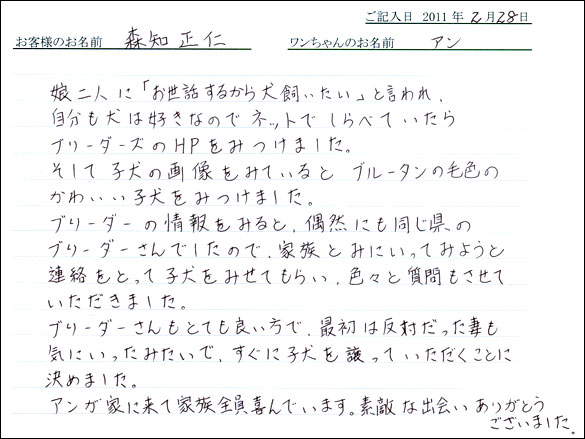 ご記入日 2011 年 2月28日
お客様のお名前 森知正仁 ワンちゃんのお名前 アン
娘二人に「お世話するから犬飼いたい」と言われ、
自分も犬は好きなのでネットでしらべていたら
ブリーダーズのHPをみつけました。
そして子犬の画像をみていると ブルータンの毛色の
かわいい子犬をみつけました。
ブリーダーの情報をみると、偶然にも同じ県の
ブリーダーさんでしたので、家族とみにいってみようと
連絡をとって子犬をみせてもらい、色々と質問もさせて
いただきました。
ブリーダーさんもとても良い方で、最初は反対だった妻も
気にいったみたいで、すぐに子犬を譲っていただくことに
決めました。
アンが家に来て家族全員喜んでいます。素敵な出会いありがとう
ございました。